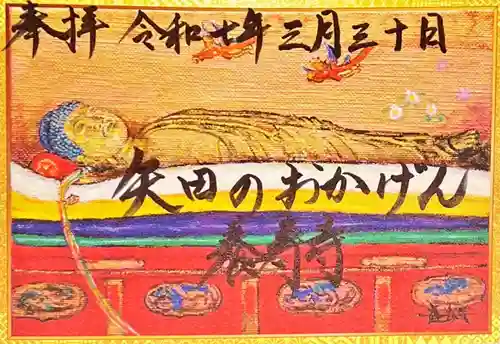 奉拝 令和七年三月三十日
矢田のおかげん
養寿寺